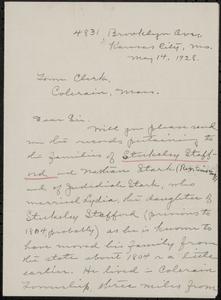 4831 Brooklyn Ave,
Kansas City, Mo.
May 14, 1928.
Town Clerk,
Colerain, Mass.
Dear Sir:
Will you please send
me the records pertaining to
the families of Stukeley Staff-
ord and Nathan Stark (Rev. Soldier)
and of Jedediah Stark, who
married Lydia, the daughter of
Stukeley Stafford (previous to
1804, probably) as he is known to
have moved his family from
the state about 1804 or a little
earlier. He lived in Colerain
Township, three miles from